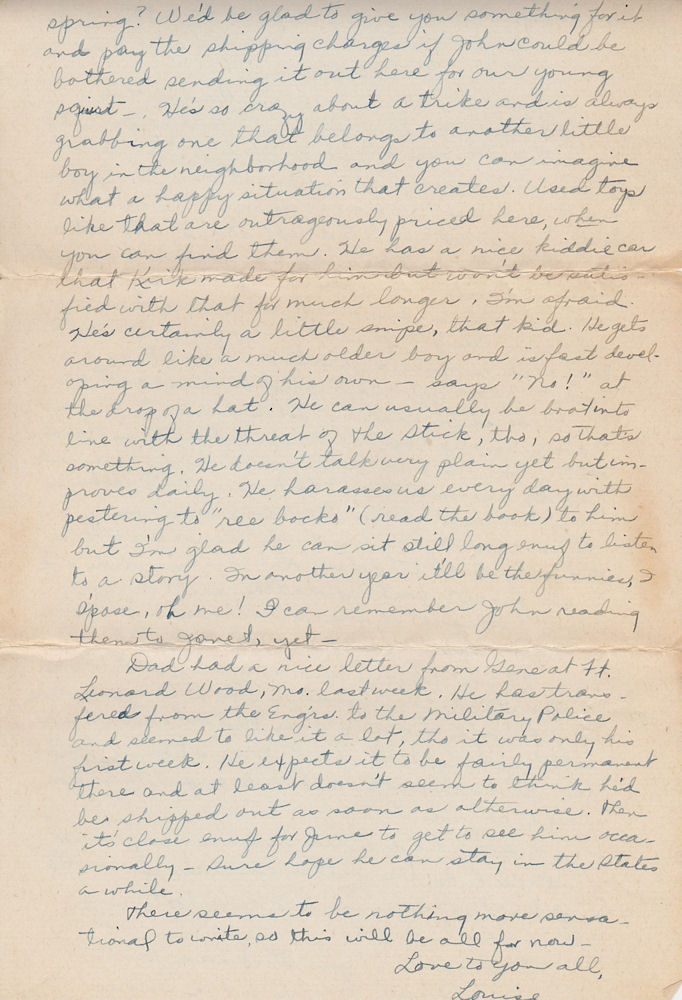 spring? We'd be glad to give you something for it
and pay the shipping charges if John could be
bothered sending it out here for our young
squirt -. He's so crazy about a trike and is always
grabbing one that belongs to another little
boy in the neighborhood and you can imagine
what a happy situation that creates. Used toys
like that are outrageously priced here, when
you can find them. He has a nice kiddie car
that Kirk made for him but won't be satis-
fied with that for much longer, I'm afraid.
He's certainly a little snipe, that kid. He gets
around like a much older boy and is fast devel-
oping a mind of his own - says "No!" at
the drop of a hat. He can usually be brot into
line with the threat of the stick, tho, so that's
something. He doesn't talk very plain yet but im-
proves daily. He harasses us every day with
pestering to "ree bocks" (read the book) to him
but I'm glad he can sit still long enuf to listen
to a story. In another year it'll be the funnies, I
s'pose, oh me! I can remember John reading
them to Janet, yet -
Dad had a nice letter from Gene at Ft.
Leonard Wood, Mo. last week. He has trans-
fered from the Eng'rs. to the Military Police
and seemed to like it a lot, tho it was only his
first week. He expects it to be fairly permanent
there and at least doesn't seem to think he'd
be shipped out as soon as otherwise. Then
it's close enuf for June to get to see him occa-
sionally - Sure hope he can stay in the States
a while.
There seems to be nothing more sensa-
tional to write, so this will be all for now -
Love to you all,
Louise